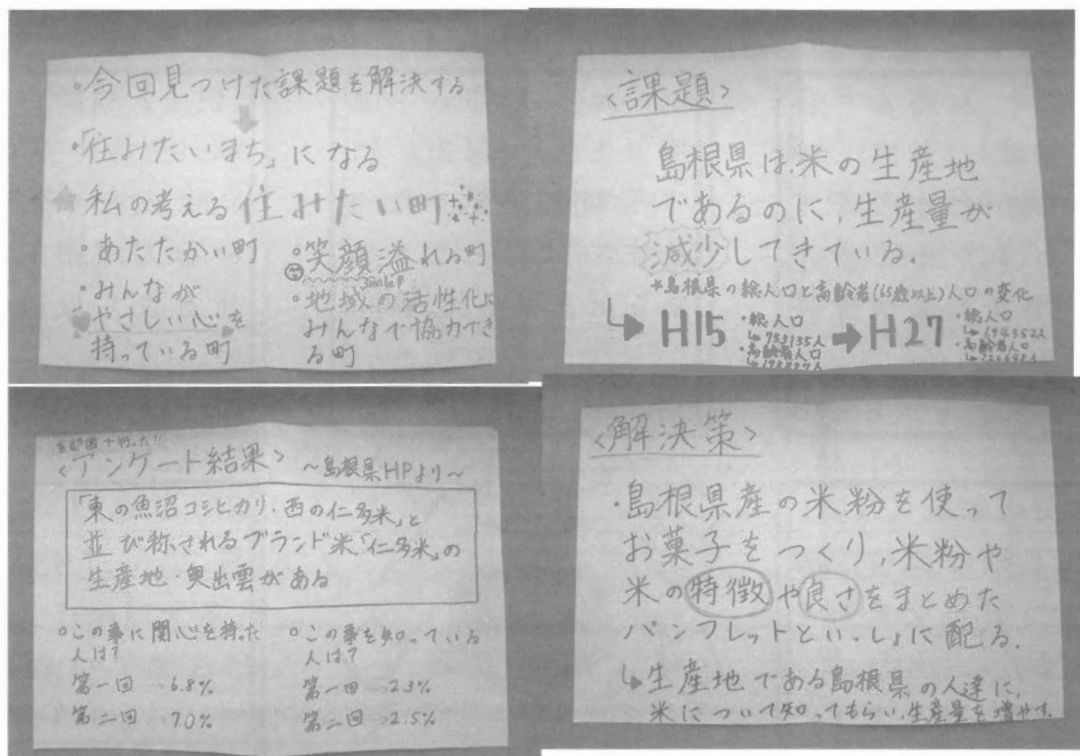 ・今回見つけた課題を解決する
・「住みたいまち」になる
私の考える住みたい町
・あたたかい町
・みんなが
やさしい心を
持っている町
・笑顔溢れる町
smile!
・地域の活性化に
みんなで協力でき
る町
<課題>
島根県は、米の生産地
であるのに、生産量が
減少してきている。
*島根県の総人口と高齢者(65歳以上)人口の変化
H15
・総人口
753135人
・高齢者人口
H27
・総人口
694352人
・高齢者人口
首都圏で行った!!
<アンケート結果> ~島根県HPより~
「東の魚沼コシヒカリ、西の仁多米」と
並び称されるブランド米「仁多米」の
生産地・奥出雲がある
・この事に関心を持った
人は?
第一回…6.8%
第二回→7.0%
・この事を知っている
人は?
第一回→2.3%
第二回→2.5%
<解決策>
・島根県産の米粉を使って
お菓子をつくり、米粉や
米の特徴や良さをまとめた
パンフレットといっしょに配る。
↳生産地である島根県の人達に、
米について知ってもらい、生産量を増やす。